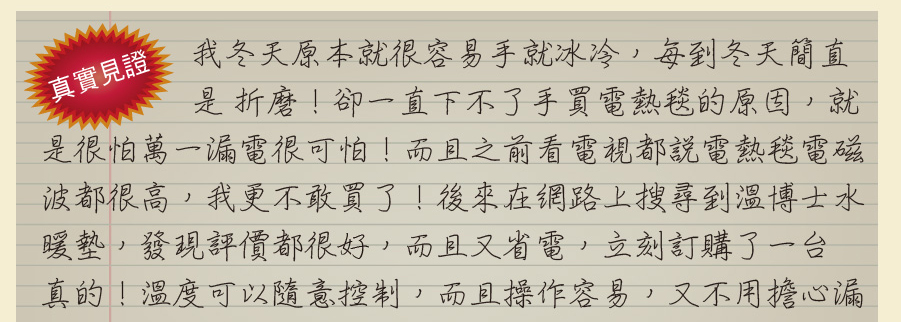 真實見證
我冬天原本就很容易手就冰冷，每到冬天簡直
是折磨！卻一直下不了手買電熱毯的原因，就
是很怕萬一漏電很可怕！而且之前看電視都説電熱毯電磁
波都很高，我更不敢買了！後來在網路上搜尋到溫博士水
暖墊，發現評價都很好，而且又省電，立刻訂購了一台
真的！溫度可以隨意控制，而且操作容易，又不用擔心漏